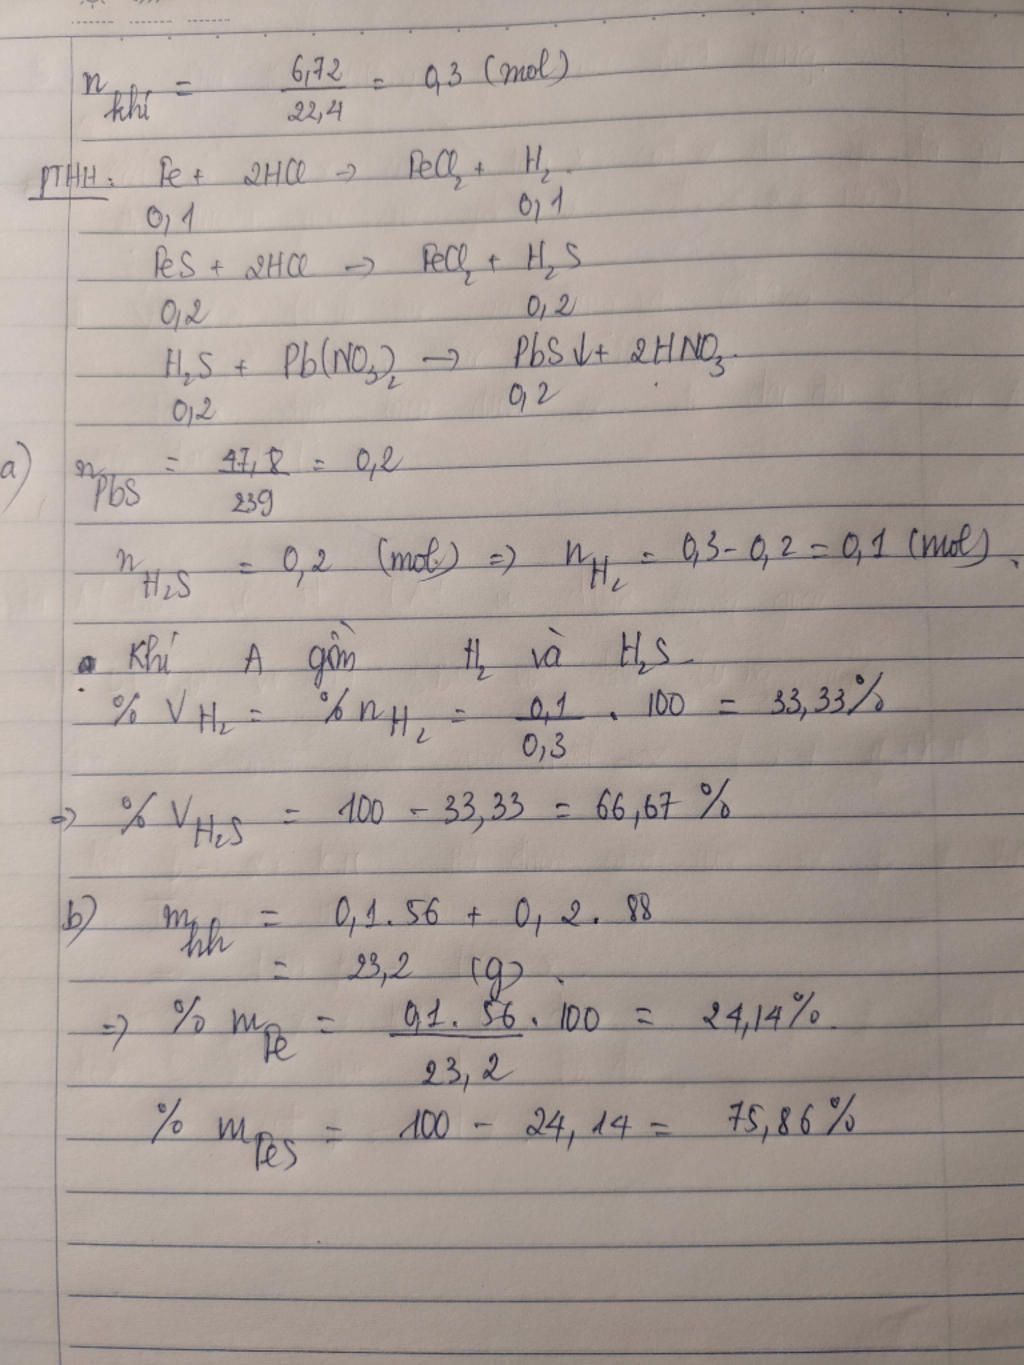 n khí = 6,72 / 22,4 = 0,3 (mol)
PTHH: Fe + 2HCl → FeCl2 + H2.
0,1 0,1
FeS + 2HCl → FeCl2 + H2S
0,2 0,2
H2S + Pb(NO3)2 → PbS↓ + 2HNO3.
0,2 0,2
a) nPbS = 47,8 / 239 = 0,2
nH2S = 0,2 (mol) => nH2 = 0,3 - 0,2 = 0,1 (mol).
• Khí A gồm H2 và H2S
% VH2 = % nH2 = 0,1 / 0,3 . 100 = 33,33%
=> % VH2S = 100 - 33,33 = 66,67 %
b) mhh = 0,1.56 + 0,2.88
= 23,2 (g).
=> % mFe = 0,1.56 / 23,2 . 100 = 24,14%.
% mFeS = 100 - 24,14 = 75,86%